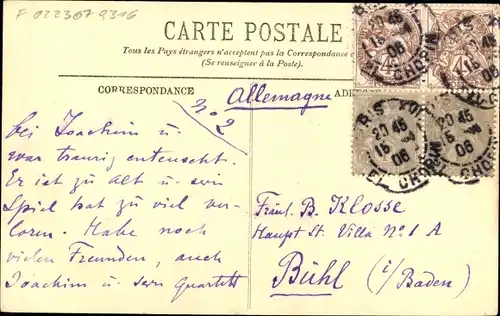 F 022307 9316
CARTE POSTALE
Tous les Pays étrangers n'acceptent pas la Correspondance
(Se renseigner à la Poste).
CORRESPONDANCE
No 2
Allemagne
bei Joachim u.
war traurig enteuscht.
Er ist zu alt u. sein
Spiel hat zu viel ver-
loren. Habe noch
vielen Freunden, auch
Joachim u. sein Quartett
Fräul. B. Klosse
Haupt St. Villa No 1 A
Bühl (i/Baden)
20 45
15
06
CHOPIN
20 45
15
06
CHOPIN